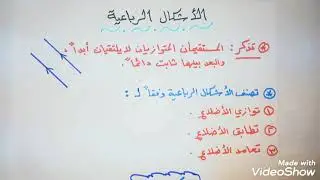 الأشكال الرباعية
تذكر: المستقيمان المتوازيان لا يلتقيان أبداً
والبعد بينهما ثابت دائماً.
تصنف الأشكال الرباعية وفقاً لـ:
١ توازي الأضلاع.
٢ تطابق الأضلاع.
٣ تعامد الأضلاع.
Made with
VideoShow